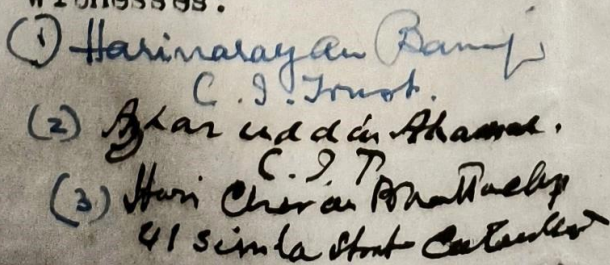 Witnesses.
(1) Harinarayan Banerji
C. I. Trust.
(2) Azhar uddin Ahamed.
C. I. T
(3) Hari Charan Bhattachrjy
41 simla Street Calcutta